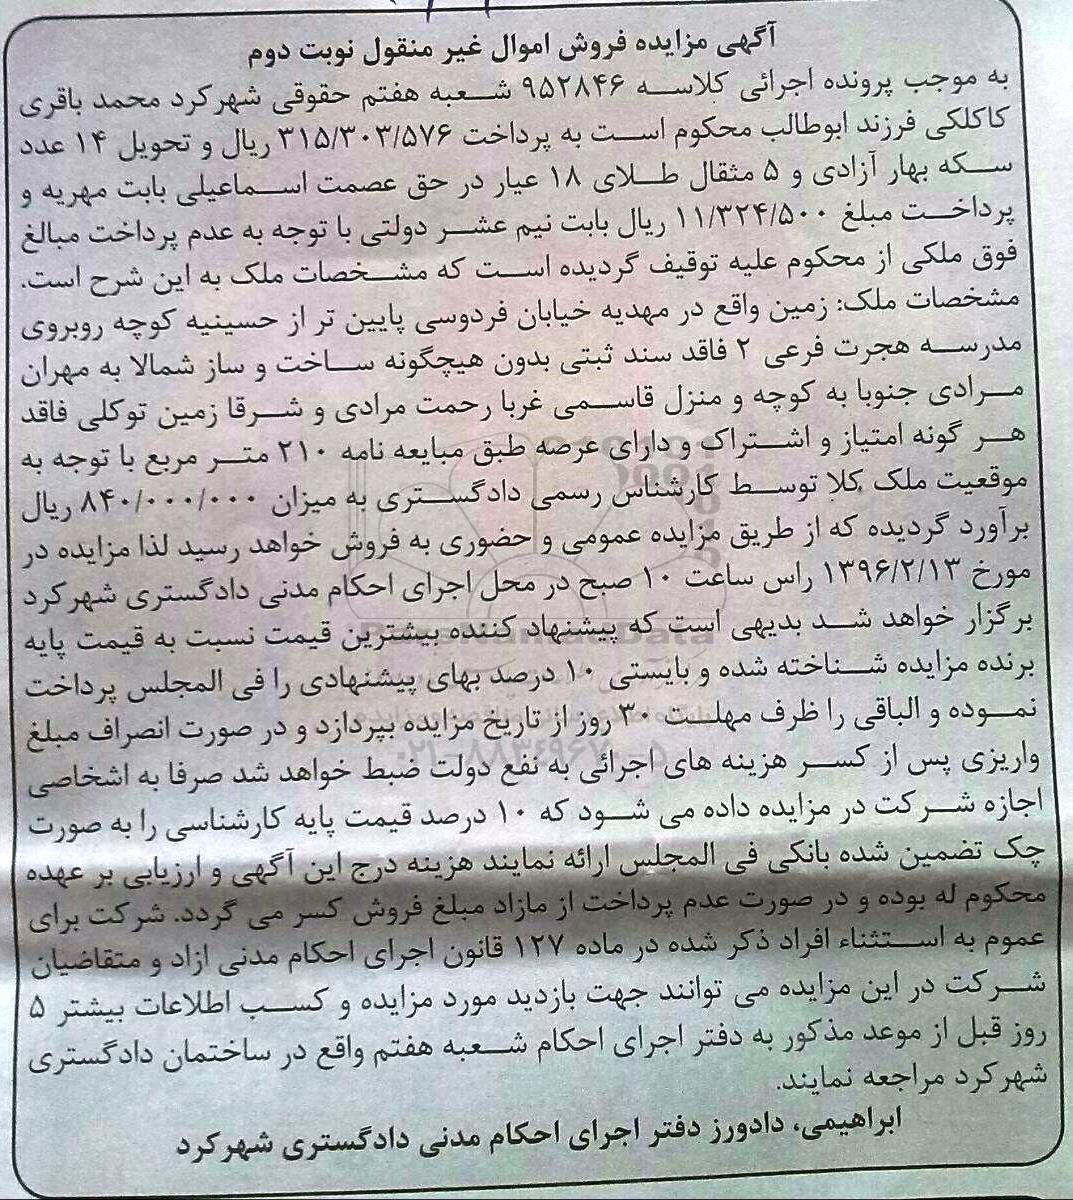 آگهی مزایده فروش اموال غیر منقول نوبت دوم
به موجب پرونده اجرائی کلاسه ۹۵۲۸۴۶ شعبه هفتم حقوقی شهرکرد محمد باقری
کاکلکی فرزند ابوطالب محکوم است به پرداخت ۳۱۵/۳۰۳/۵۷۶ ریال و تحویل ۱۴ عدد
سکه بهار آزادی و ۵ مثقال طلای ۱۸ عیار در حق عصمت اسماعیلی بابت مهریه و
پرداخت مبلغ ۱۱/۳۲۴/۵۰۰ ریال بابت نیم عشر دولتی با توجه به عدم پرداخت مبالغ
فوق ملکی از محکوم علیه توقیف گردیده است که مشخصات ملک به این شرح است.
مشخصات ملک: زمین واقع در مهدیه خیابان فردوسی پایین تر از حسینیه کوچه روبروی
مدرسه هجرت فرعی ۲ فاقد سند ثبتی بدون هیچگونه ساخت و ساز شمالا به مهران
مرادی جنوبا به کوچه و منزل قاسمی غربا رحمت مرادی و شرقا زمین توکلی فاقد
هر گونه امتیاز و اشتراک و دارای عرصه طبق مبایعه نامه ۲۱۰ متر مربع با توجه به
موقعیت ملک کلا توسط کارشناس رسمی دادگستری به میزان ۸۴۰/۰۰۰/۰۰۰ ریال
برآورد گردیده که از طریق مزایده عمومی و حضوری به فروش خواهد رسید لذا مزایده در
مورخ ۱۳۹۶/۲/۱۳ راس ساعت ۱۰ صبح در محل اجرای احکام مدنی دادگستری شهرکرد
برگزار خواهد شد بدیهی است که پیشنهاد کننده بیشترین قیمت نسبت به قیمت پایه
برنده مزایده شناخته شده و بایستی ۱۰ درصد بهای پیشنهادی را فی المجلس پرداخت
نموده و الباقی را ظرف مهلت ۳۰ روز از تاریخ مزایده بپردازد و در صورت انصراف مبلغ
واریزی پس از کسر هزینه های اجرائی به نفع دولت ضبط خواهد شد صرفا به اشخاصی
اجازه شرکت در مزایده داده می شود که ۱۰ درصد قیمت پایه کارشناسی را به صورت
چک تضمین شده بانکی فی المجلس ارائه نمایند هزینه درج این آگهی و ارزیابی بر عهده
محکوم له بوده و در صورت عدم پرداخت از مازاد مبلغ فروش کسر می گردد. شرکت برای
عموم به استثناء افراد ذکر شده در ماده ۱۲۷ قانون اجرای احکام مدنی ازاد و متقاضیان
شرکت در این مزایده می توانند جهت بازدید مورد مزایده و کسب اطلاعات بیشتر ۵
روز قبل از موعد مذکور به دفتر اجرای احکام شعبه هفتم واقع در ساختمان دادگستری
شهرکرد مراجعه نمایند.
ابراهیمی، دادورز دفتر اجرای احکام مدنی دادگستری شهرکرد